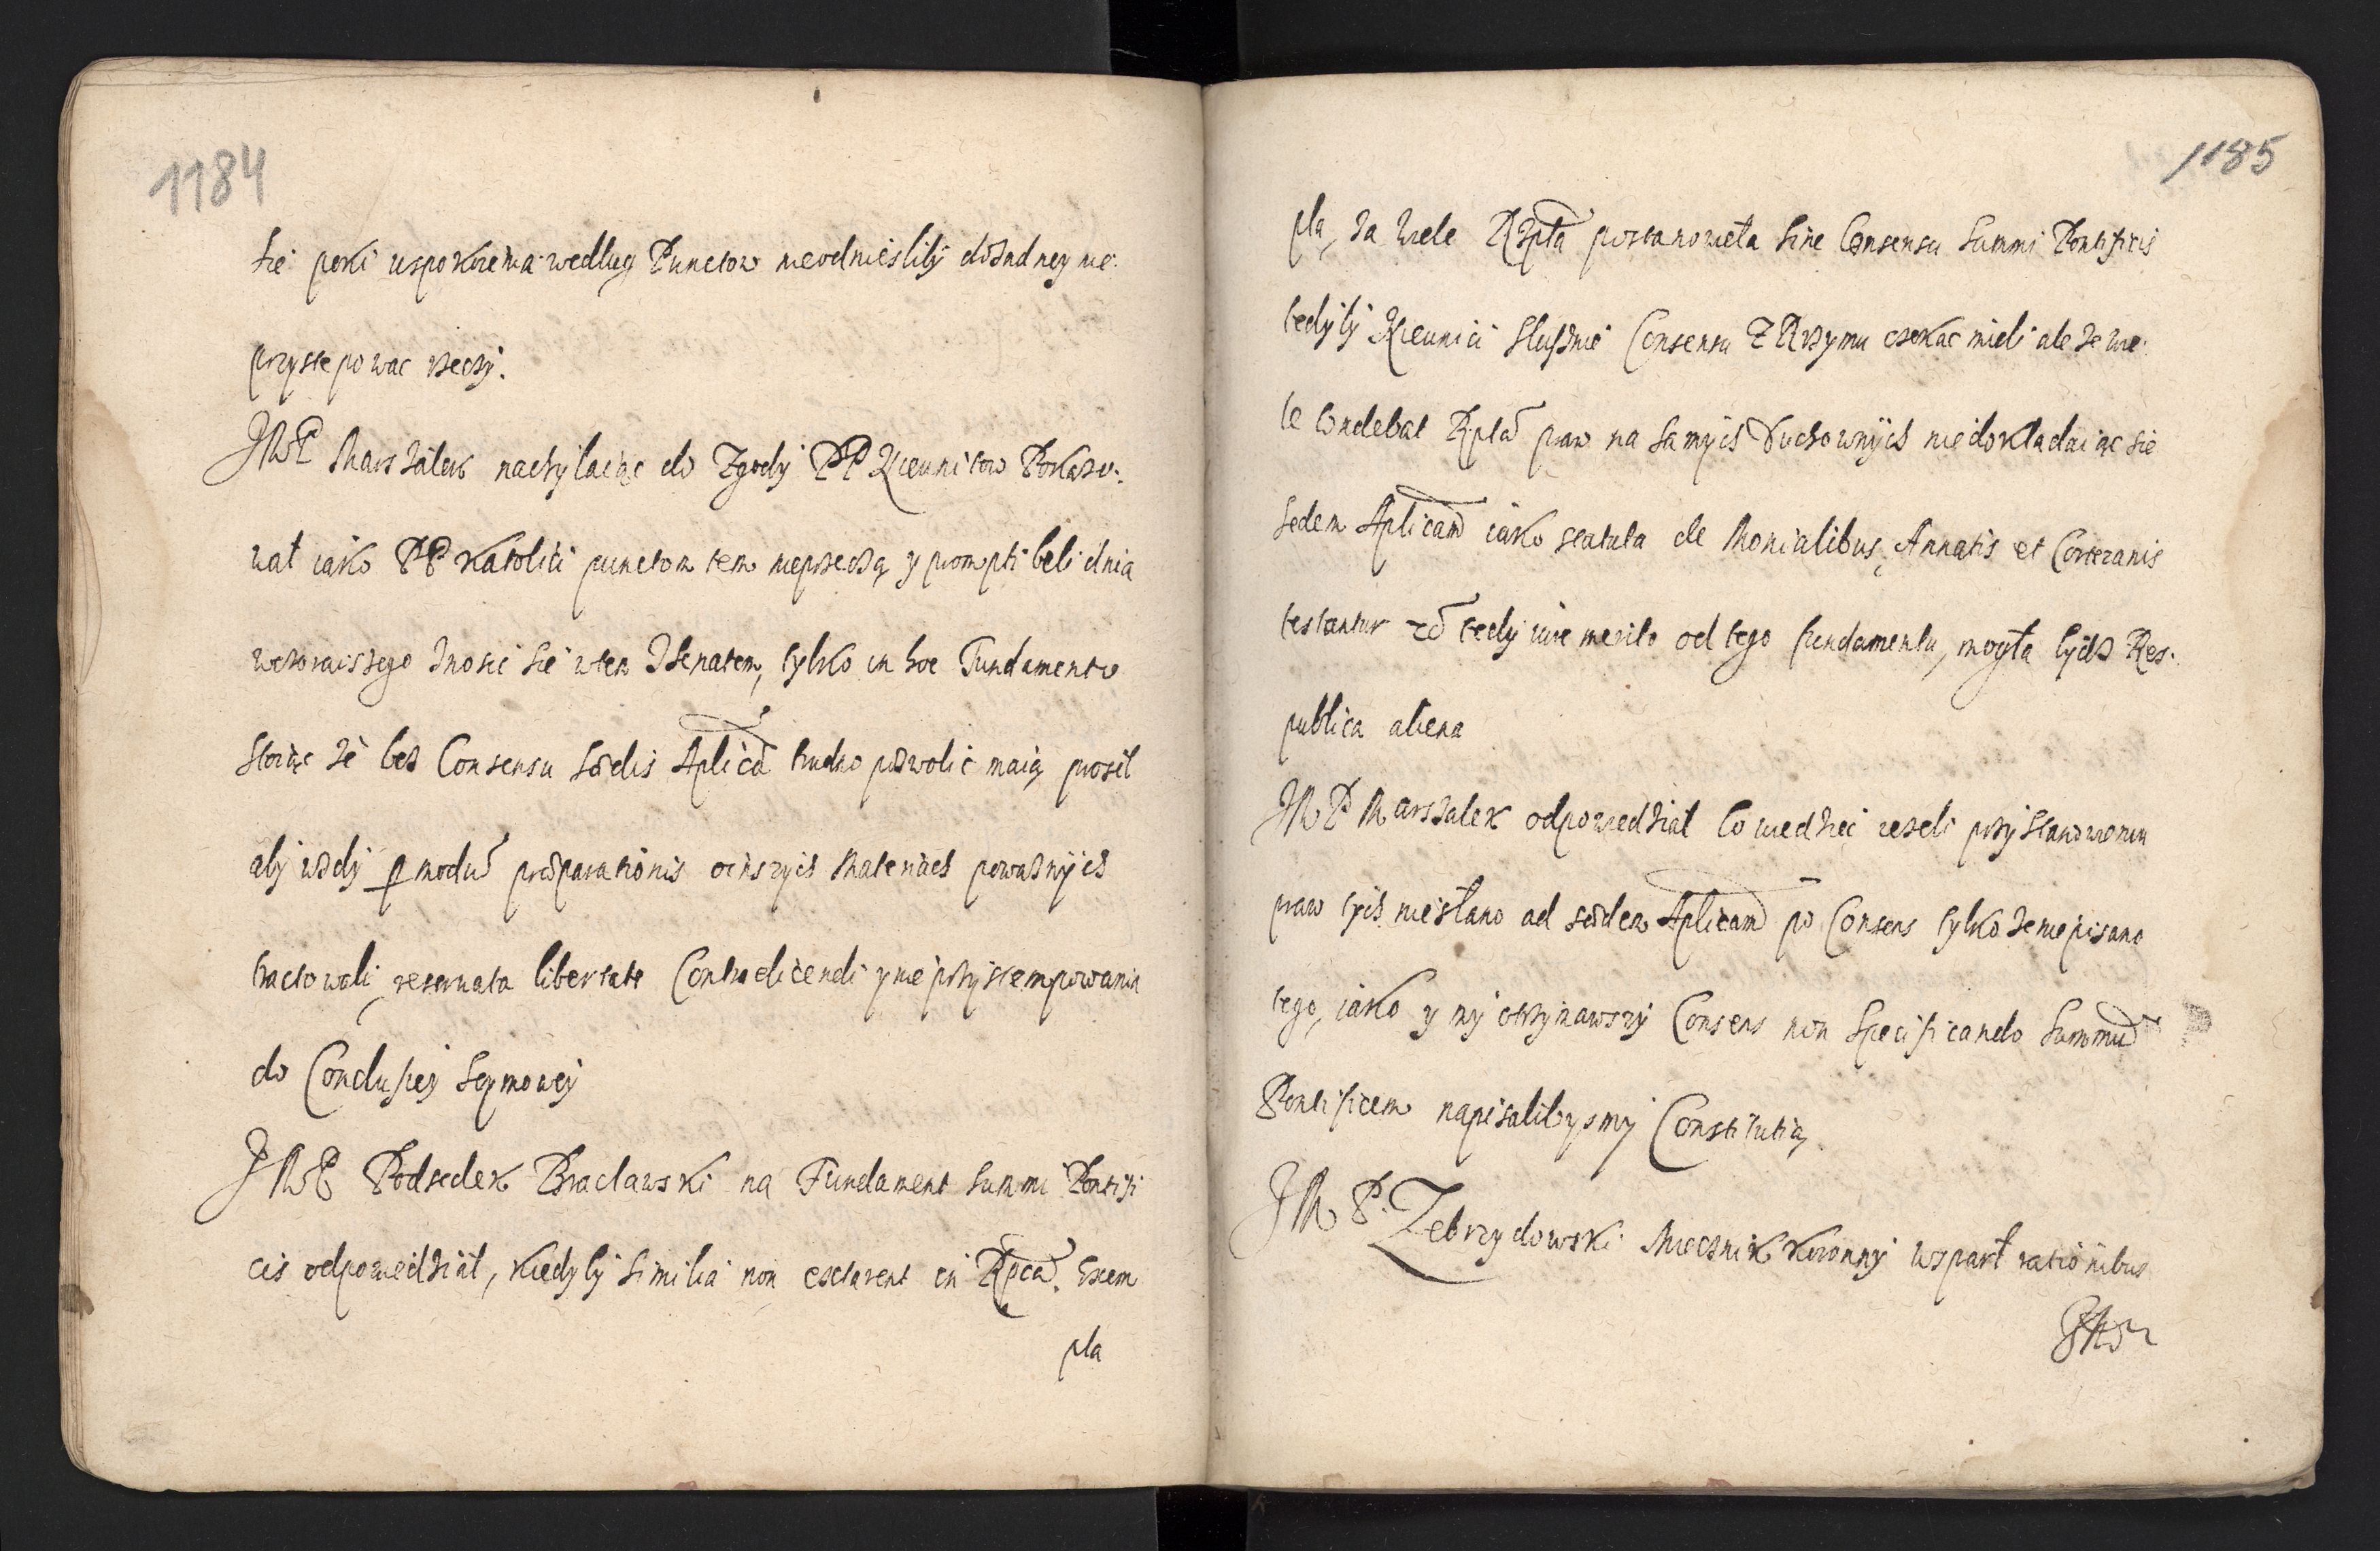 1184
sie poki uspokoienia według Punctow nieodniesliby do zadney nie
przystepowac rzeczy.
JMP Marszałek nachylaiąc do Zgody PP Nieunitow Pokazo-
wał iako PP Katolici punctow tem nieprzeczą y prompti beli dnia
wczoraiszego znosic sie wtem zSenatem, tylko in hoc Fundamento
stoiąc że bez Consensu Sedis Aplicae trudno pozwolic maią prosił
aby wzdy per modum praeparationis oinszych Materiach poważnych
tractowali reservata libertate Contradicendi y nie przystempowania
do Conclusiey Seymowey
JMP Podsedek Bracławski na Fundament Summi Pontifi
cis odpowiedział, kiedyby similia non exstarent in Rpca. Exem
pla
1185
pla, za wiele Rzpta postanowieła sine Consensu Summi Pontificis
tedyby Nieunici słusznie Consensu z Rzymu czekac mieli ale że wie-
le condebat Rpta praw na samych Duchownych niedokładaiąc sie
Sedem Aplicam iako statuta de Monialibus, Annatis et Cortezanis
testantur tedy iure merito od tego fundamentu, mogła bydz Res-
publica aliena
JMP Marszałek odpowiedział Co wiedziec iezeli przy stanowieniu
praw tych niesłano ad sedem Aplicam po Consens tylko ze nie pisano
tego, iako y my otrzymawszy Consens non specificando Summum
Pontificem napisalibysmy Constitutią
JMP. Zebrzydowski Miecznik Koronny wsparł rationibus